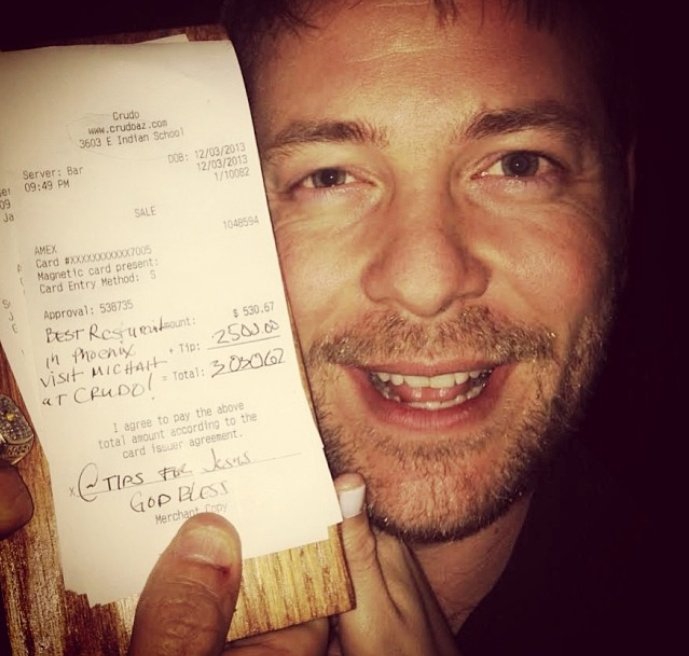 Crudo
www.crudoaz.com
3603 E Indian School
Server: Bar
DOB: 12/03/2013
09:49 PM
12/03/2013
1/10082
SALE
1048594
AMEX
Card #XXXXXXXXXXX7005
Magnetic card present:
Card Entry Method: S
Approval: 538735
BEST Resturant
Amount: $ 530.67
in Phoenix
+ Tip: 2500.00
VISIT MICHAH
= Total: 3030.67
AT CRUDO!
I agree to pay the above
total amount according to the
card issuer agreement.
x @TIPS FOR Jesus
GOD BLESS
Merchant Copy